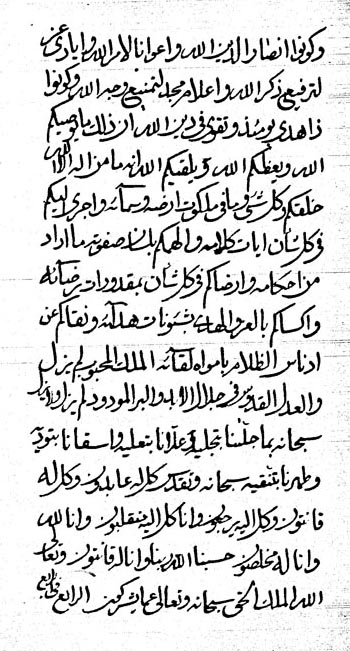 وكونوا انصار الدين الله واعوانا لامر الله وايادى عز
لترفيع ذكر الله واعلام مجد لتمنيع وجه الله وكونوا
ذا هدى يومئذ وتقوى فى دين الله ان ذلك ما يوصيكم
الله ويعظكم الله ويلقيكم الله انه ما من اله الا الله
خلقكم وكل شئ وما فى ملكوت ارضه وسمائه واجرى اليكم
فى كل شأن ايات كلامه والهكم بلسان صفوته ما اراد
من احكامه وارضاكم فى كل شأن بمقدورات رضائه
واكساكم بالعز والهدى بشئونات هدائه ونقاكم عن
ادناس الظلام لقائه الملك المحبوب لم يزل
والعدل القدوس فى جلال الابد والبر المودود لم يزل
سبحانه بما جللنا بتجليله وعلانا بتعليه واسقانا
وطهرنا بتنقيه سبحانه وتقدس كل له عابدون وكل له
قانتون وكل اليه يرجعون وانا كل اليه منقلبون وانا لله
وانا له مخلصون حسبنا الله ربنا وانا له قانتون وتعالى
الله الملك الحق سبحانه وتعالى عما يشركون الرابع